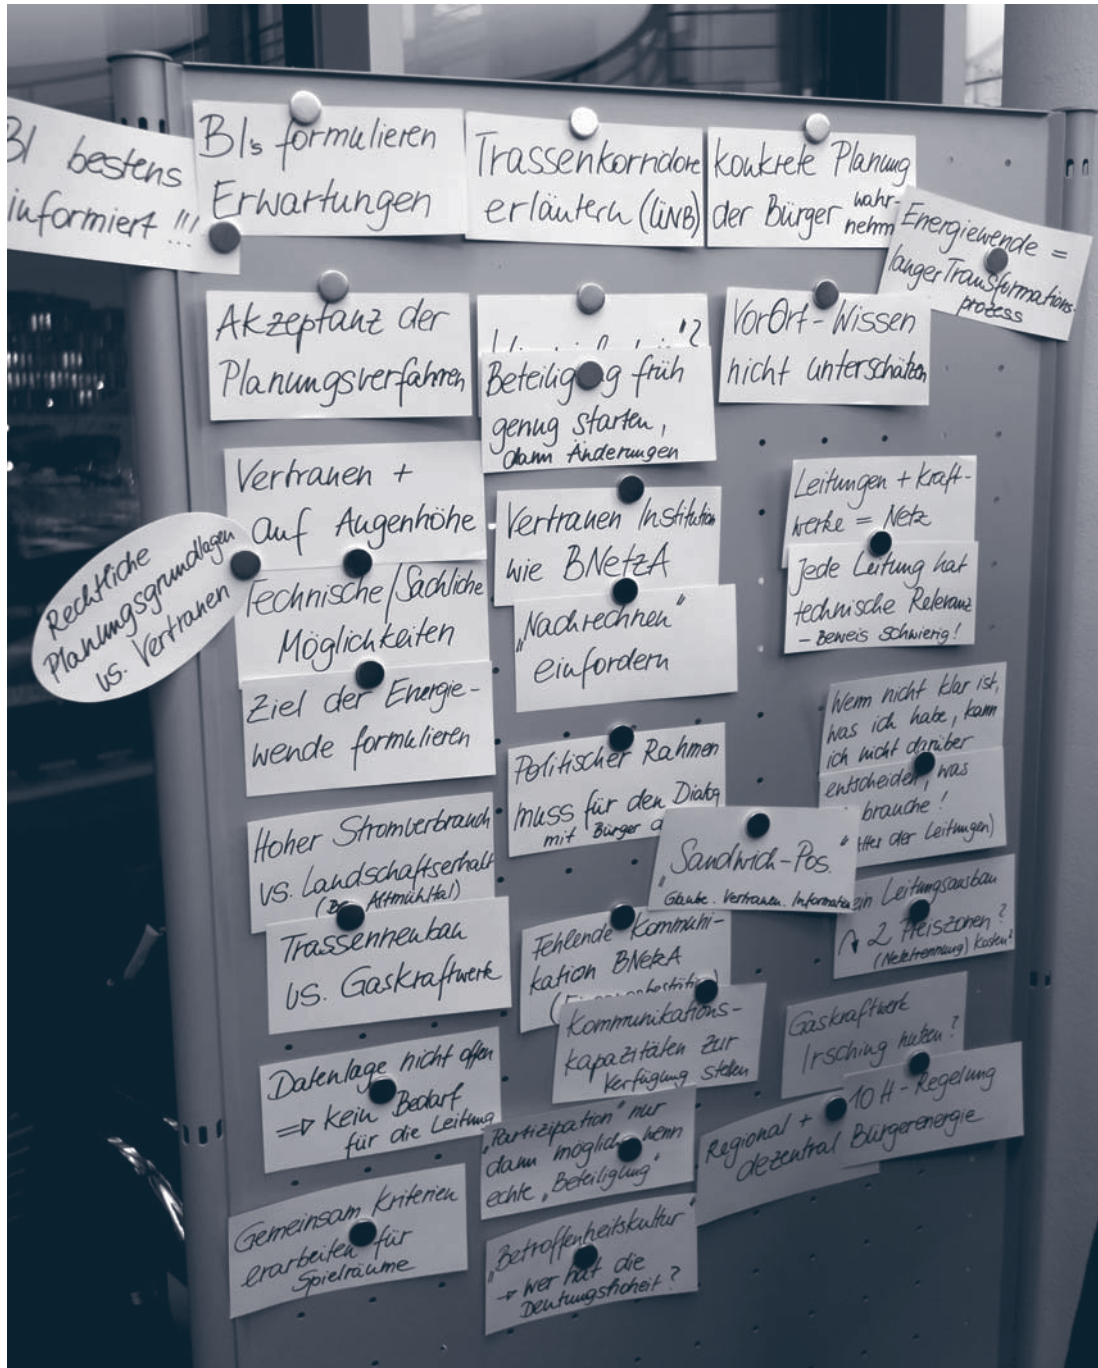 BI bestens
informiert !!!
BIs formulieren
Erwartungen
Trassenkorridore
erläutern (ÜNB)
konkrete Planung
der Bürger wahr-
nehm
Energiewende =
langer Transformations-
prozess
Akzeptanz der
Planungsverfahren
"?
Beteiligung früh
genug starten,
dann Änderungen
VorOrt-Wissen
nicht unterschätzen
Vertrauen +
auf Augenhöhe
Rechtliche
Planungsgrundlagen
vs. Vertrauen
Technische/Sachliche
Möglichkeiten
Ziel der Energie-
wende formulieren
Vertrauen Institution
wie BNetzA
"Nachrechnen"
einfordern
Leitungen + Kraft-
werke = Netz
Jede Leitung hat
technische Relevanz
- Beweis schwierig!
Wenn nicht klar ist,
was ich habe, kann
ich nicht darüber
entscheiden, was
brauche!
Alter der Leitungen)
Politischer Rahmen
muss für den Dialog
mit Bürger
"Sandwich-Pos."
Glaube. Vertrauen. Information
Hoher Stromverbrauch
vs. Landschaftserhalt
Altmühltal)
Trassenneubau
vs. Gaskraftwerk
Fehlende Kommuni-
kation BNetzA
Kommunikations-
kapazitäten zur
Verfügung stellen
ein Leitungsausbau
2 Preiszonen?
(Netztrennung) Kosten?
Gaskraftwerk
Irsching nutzen?
10 H-Regelung
Bürgerenergie
Regional +
dezentral
Datenlage nicht offen
=> kein Bedarf
für die Leitung
"Partizipation" nur
dann möglich wenn
echte "Beteiligung"
Gemeinsam Kriterien
erarbeiten für
Spielräume
"Betroffenheitskultur"
→ wer hat die
Deutungshoheit?